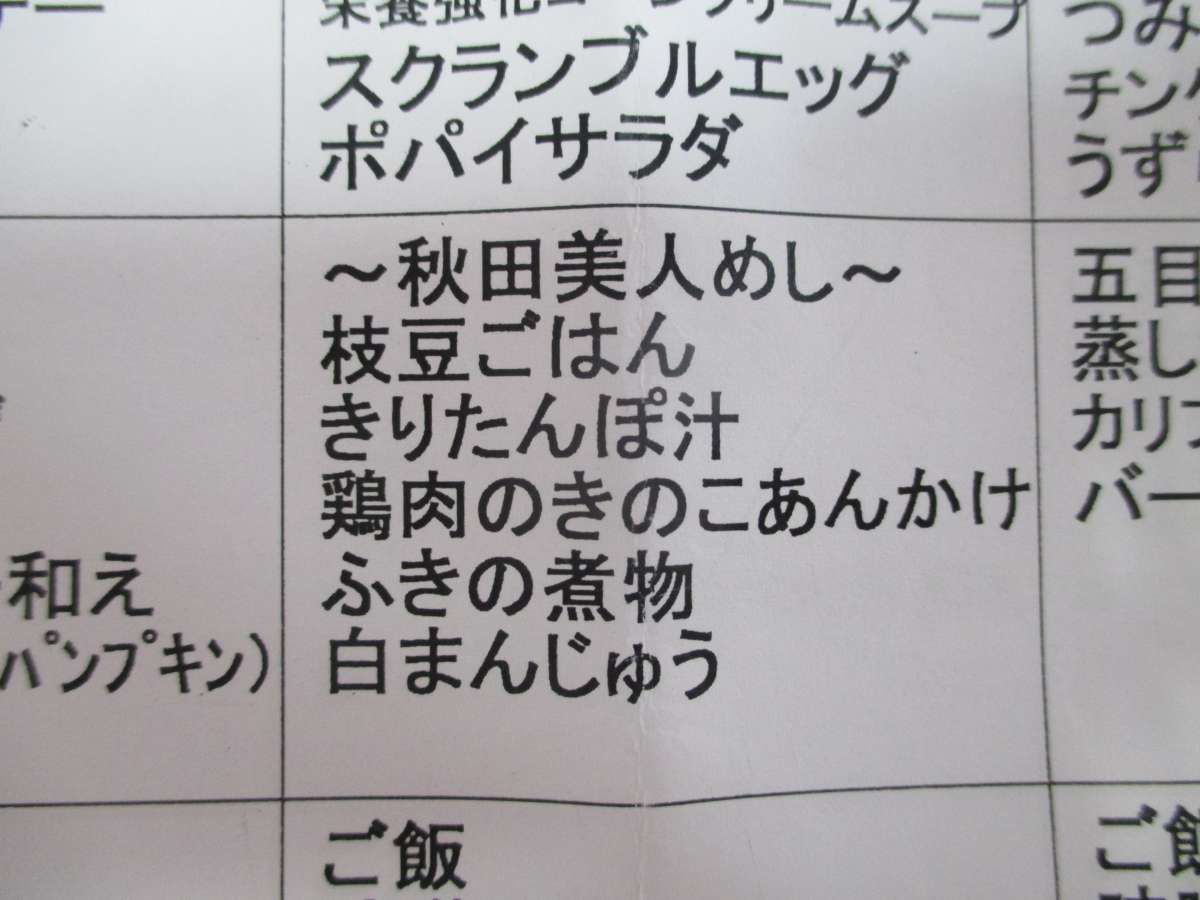 栄養強化コーンクリームスープ
スクランブルエッグ
ポパイサラダ
つみ
チンゲ
うず
和え
パンプキン)
～秋田美人めし～
枝豆ごはん
きりたんぽ汁
鶏肉のきのこあんかけ
ふきの煮物
白まんじゅう
五目
蒸し
カリフ
バー
ご飯
ご飯